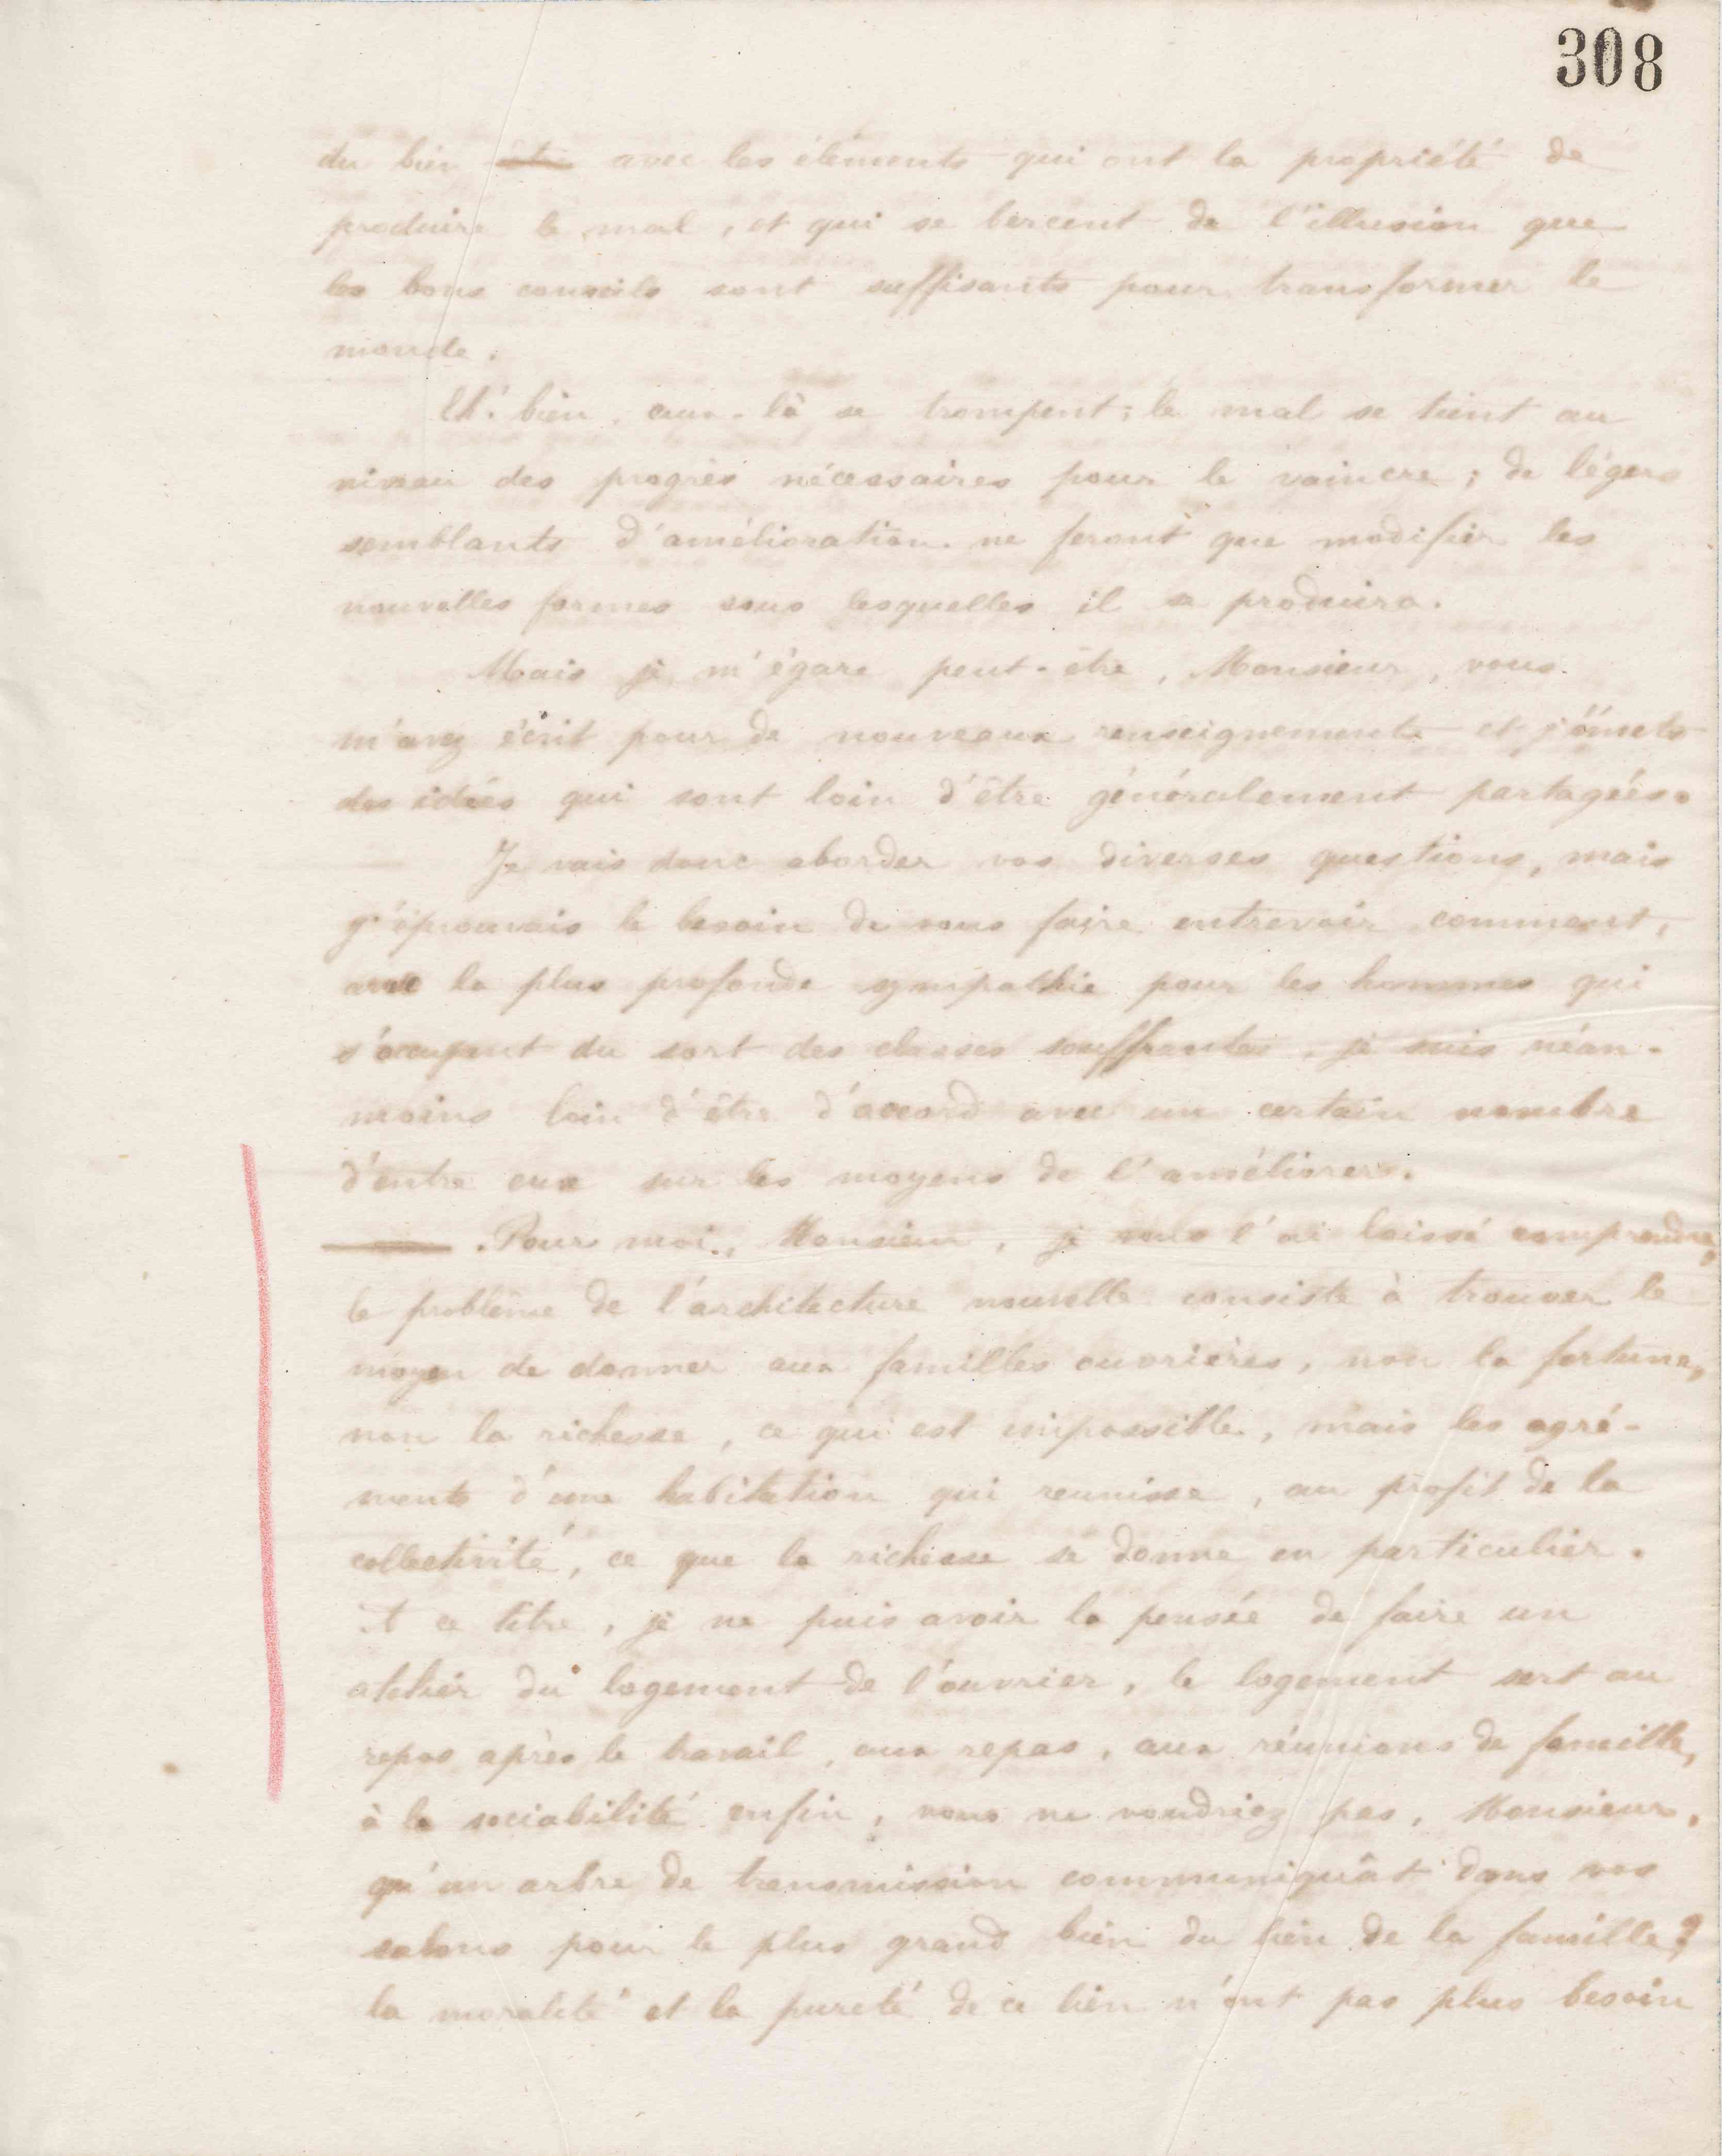 308
du bien être avec les éléments qui ont la propriété de
produire le mal, et qui se bercent de l'illusion que
les bons conseils sont suffisants pour transformer le
monde.
Eh! bien, ceux-là se trompent; le mal se tient au
niveau des progrès nécessaires pour le vaincre; de légers
semblants d'amélioration ne feront que modifier les
nouvelles formes sous lesquelles il se produira.
Mais je m'égare peut-être, Monsieur, vous
m'avez écrit pour de nouveaux renseignements et j'émets
des idées qui sont loin d'être généralement partagées.
Je vais donc aborder vos diverses questions, mais
j'éprouvais le besoin de vous faire entrevoir comment,
avec la plus profonde sympathie pour les hommes qui
s'occupent du sort des classes souffrantes, je suis néan-
moins loin d'être d'accord avec un certain nombre
d'entre eux sur les moyens de l'améliorer.
Pour moi, Monsieur, je vous l'ai laissé comprendre,
le problème de l'architecture nouvelle consiste à trouver le
moyen de donner aux familles ouvrières, non la fortune,
non la richesse, ce qui est impossible, mais les agré-
ments d'une habitation qui reunisse, au profit de la
collectivité, ce que la richesse se donne en particulier.
A ce titre, je ne puis avoir la pensée de faire un
atelier du logement de l'ouvrier, le logement sert au
repos après le travail, aux repas, aux réunions de famille,
à la sociabilité enfin, vous ne voudriez pas, Monsieur,
qu'un arbre de transmission communiquât dans vos
salons pour le plus grand bien du lien de la famille?
la moralité et la pureté de ce lien n'ont pas plus besoin